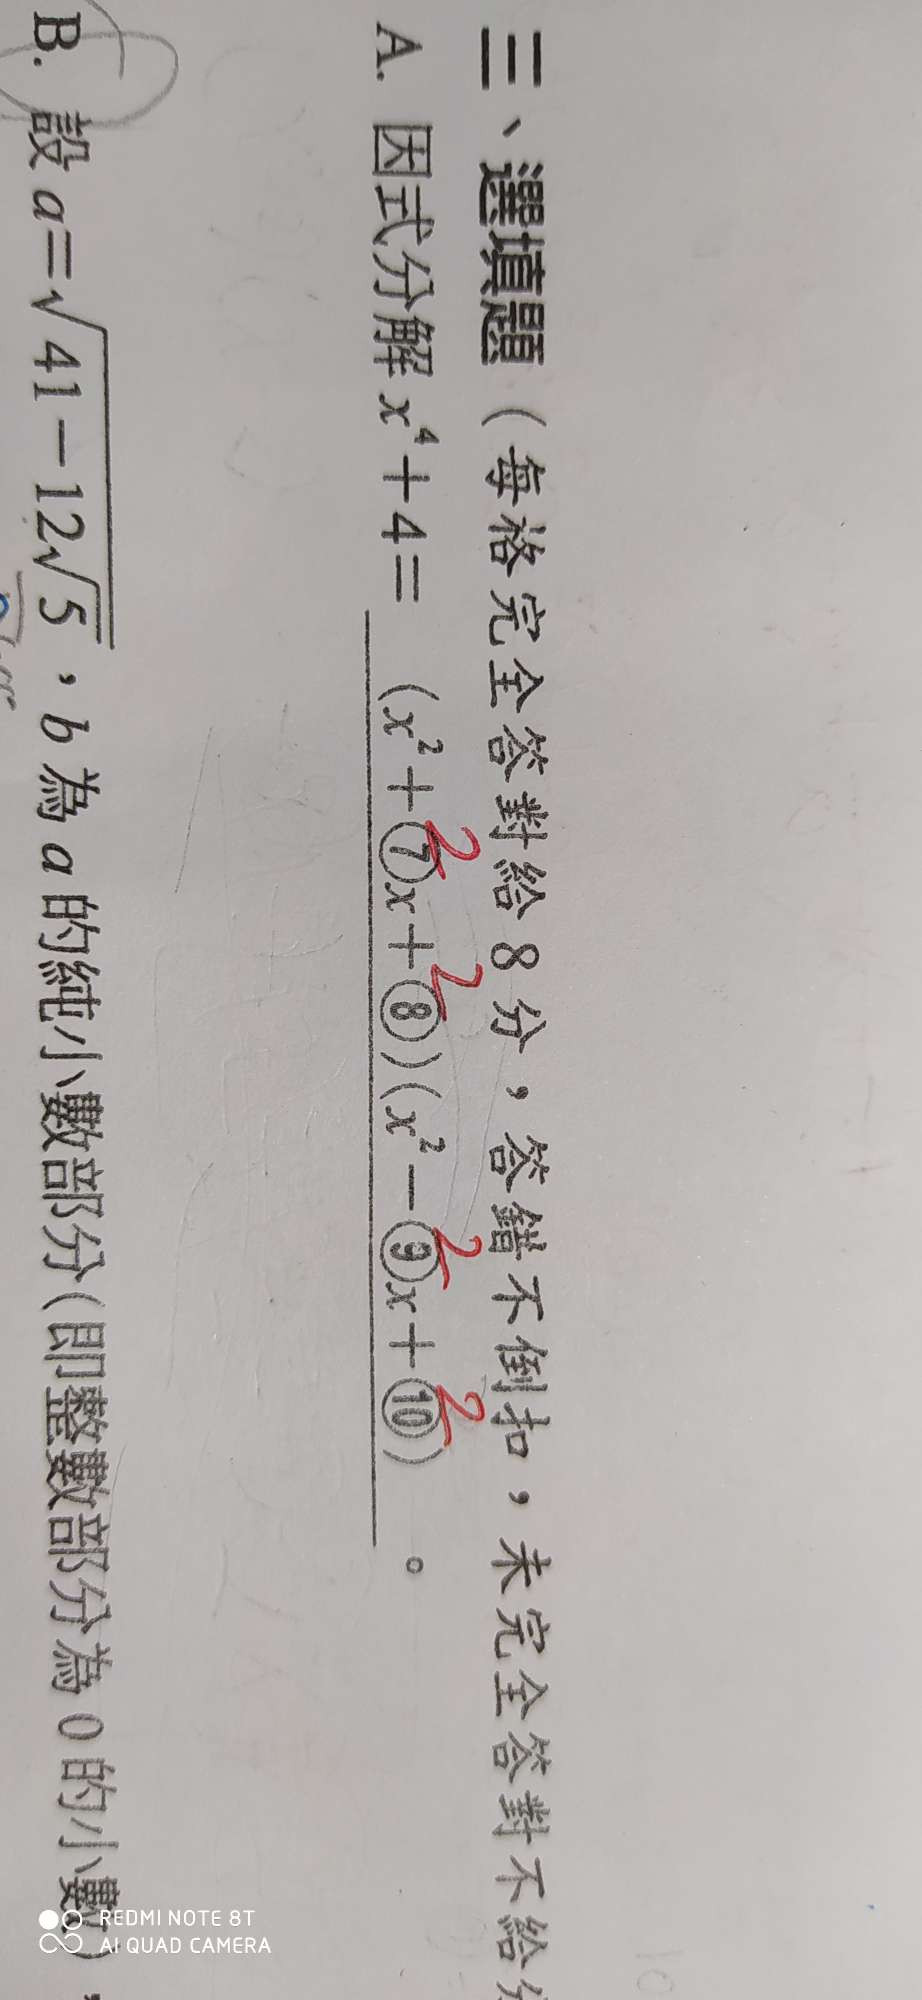 三、選填題(每格完全答對給8分,答錯不倒扣,未完全答對不給分
A. 因式分解 x⁴+4= (x²+⑦x+⑧)(x²-⑨x+⑩) 。
2 2 2 2
B. 設 a=√(41-12√5),b 為 a 的純小數部分(即整數部分為 0 的小數),
REDMI NOTE 8T
AI QUAD CAMERA